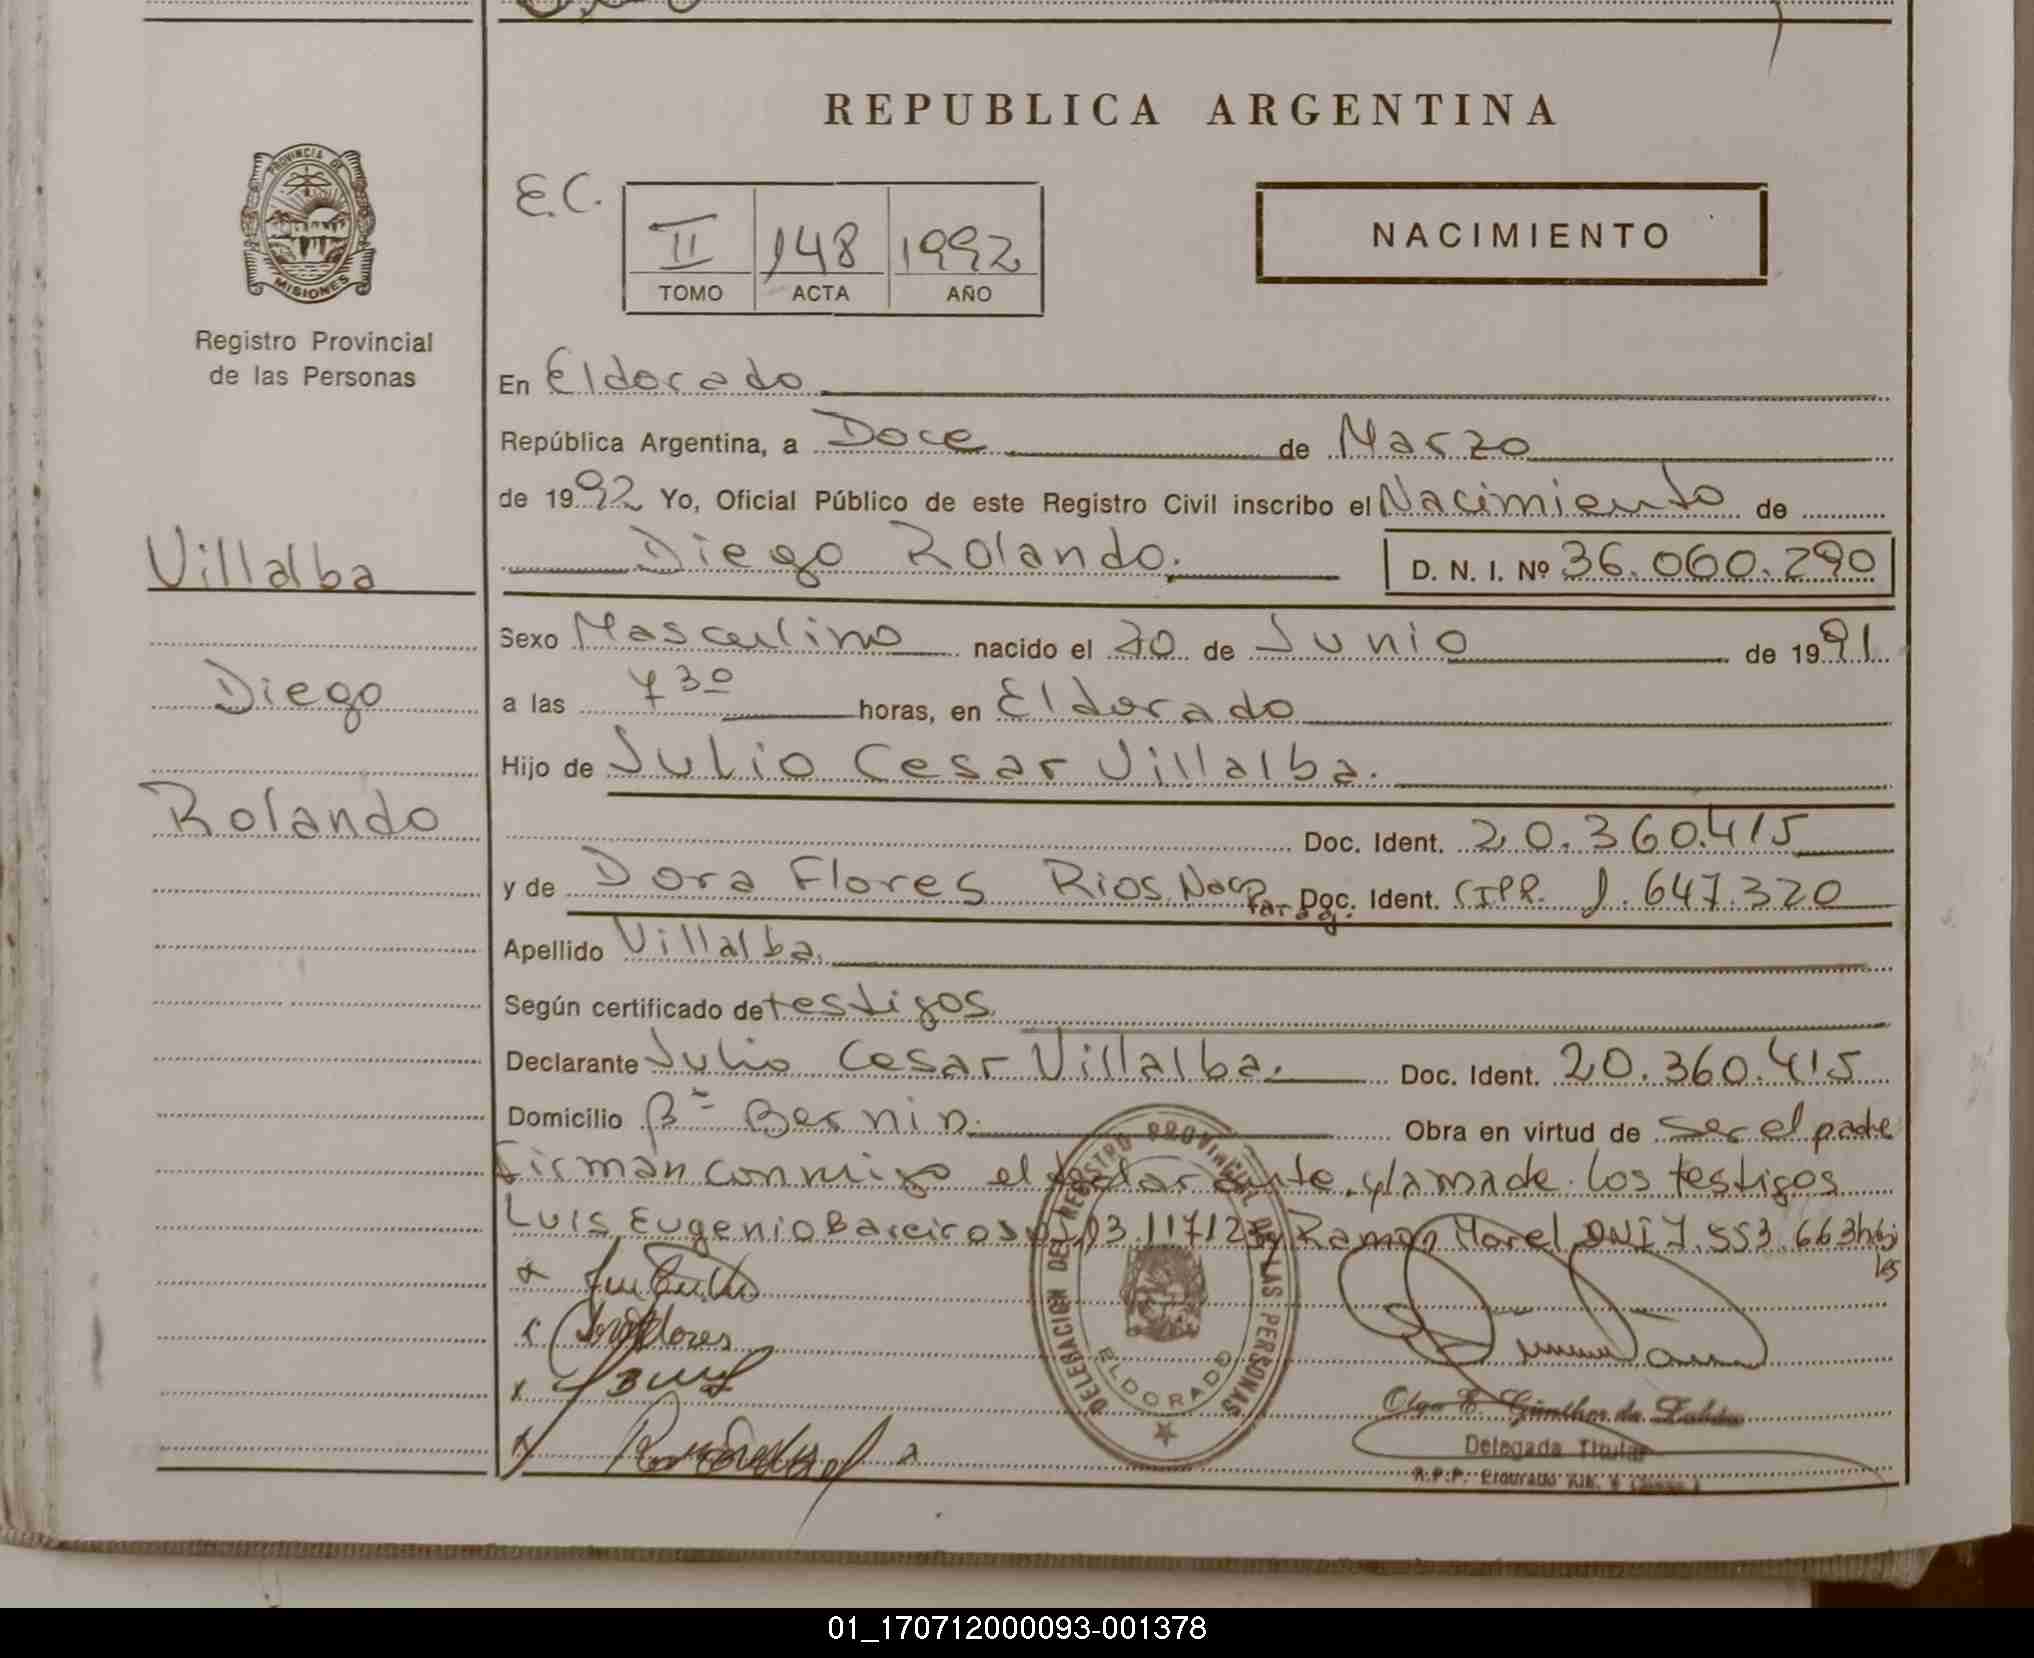 REPUBLICA ARGENTINA
PROVINCIA DE
MISIONES
Registro Provincial
de las Personas
E.C.
II 148 1992
TOMO ACTA AÑO
NACIMIENTO
En Eldorado
República Argentina, a Doce de Marzo
de 1992 Yo, Oficial Público de este Registro Civil inscribo el Nacimiento de
Villalba
Diego Rolando. D. N. I. Nº 36.060.290
Sexo Masculino nacido el 20 de Junio de 1991
Diego
a las 7 30 horas, en Eldorado
Hijo de Julio Cesar Villalba.
Rolando
Doc. Ident. 20.360.415
y de Dora Flores Rios Nac Parag. Doc. Ident. CIPP. 1.647.320
Apellido Villalba.
Según certificado de testigos
Declarante Julio Cesar Villalba. Doc. Ident. 20.360.415
Domicilio Bº Bernin. Obra en virtud de ser el padre
Firman conmigo el declarante y la madre los testigos
Luis Eugenio Bareiro y Ramon Morel DNI 7.553.663 hábiles
DELEGACION DEL REGISTRO PROVINCIAL DE LAS PERSONAS
ELDORADO
Olga E. Günther de
Delegada Titular
R.P.P. Eldorado Km. 9
01_170712000093-001378